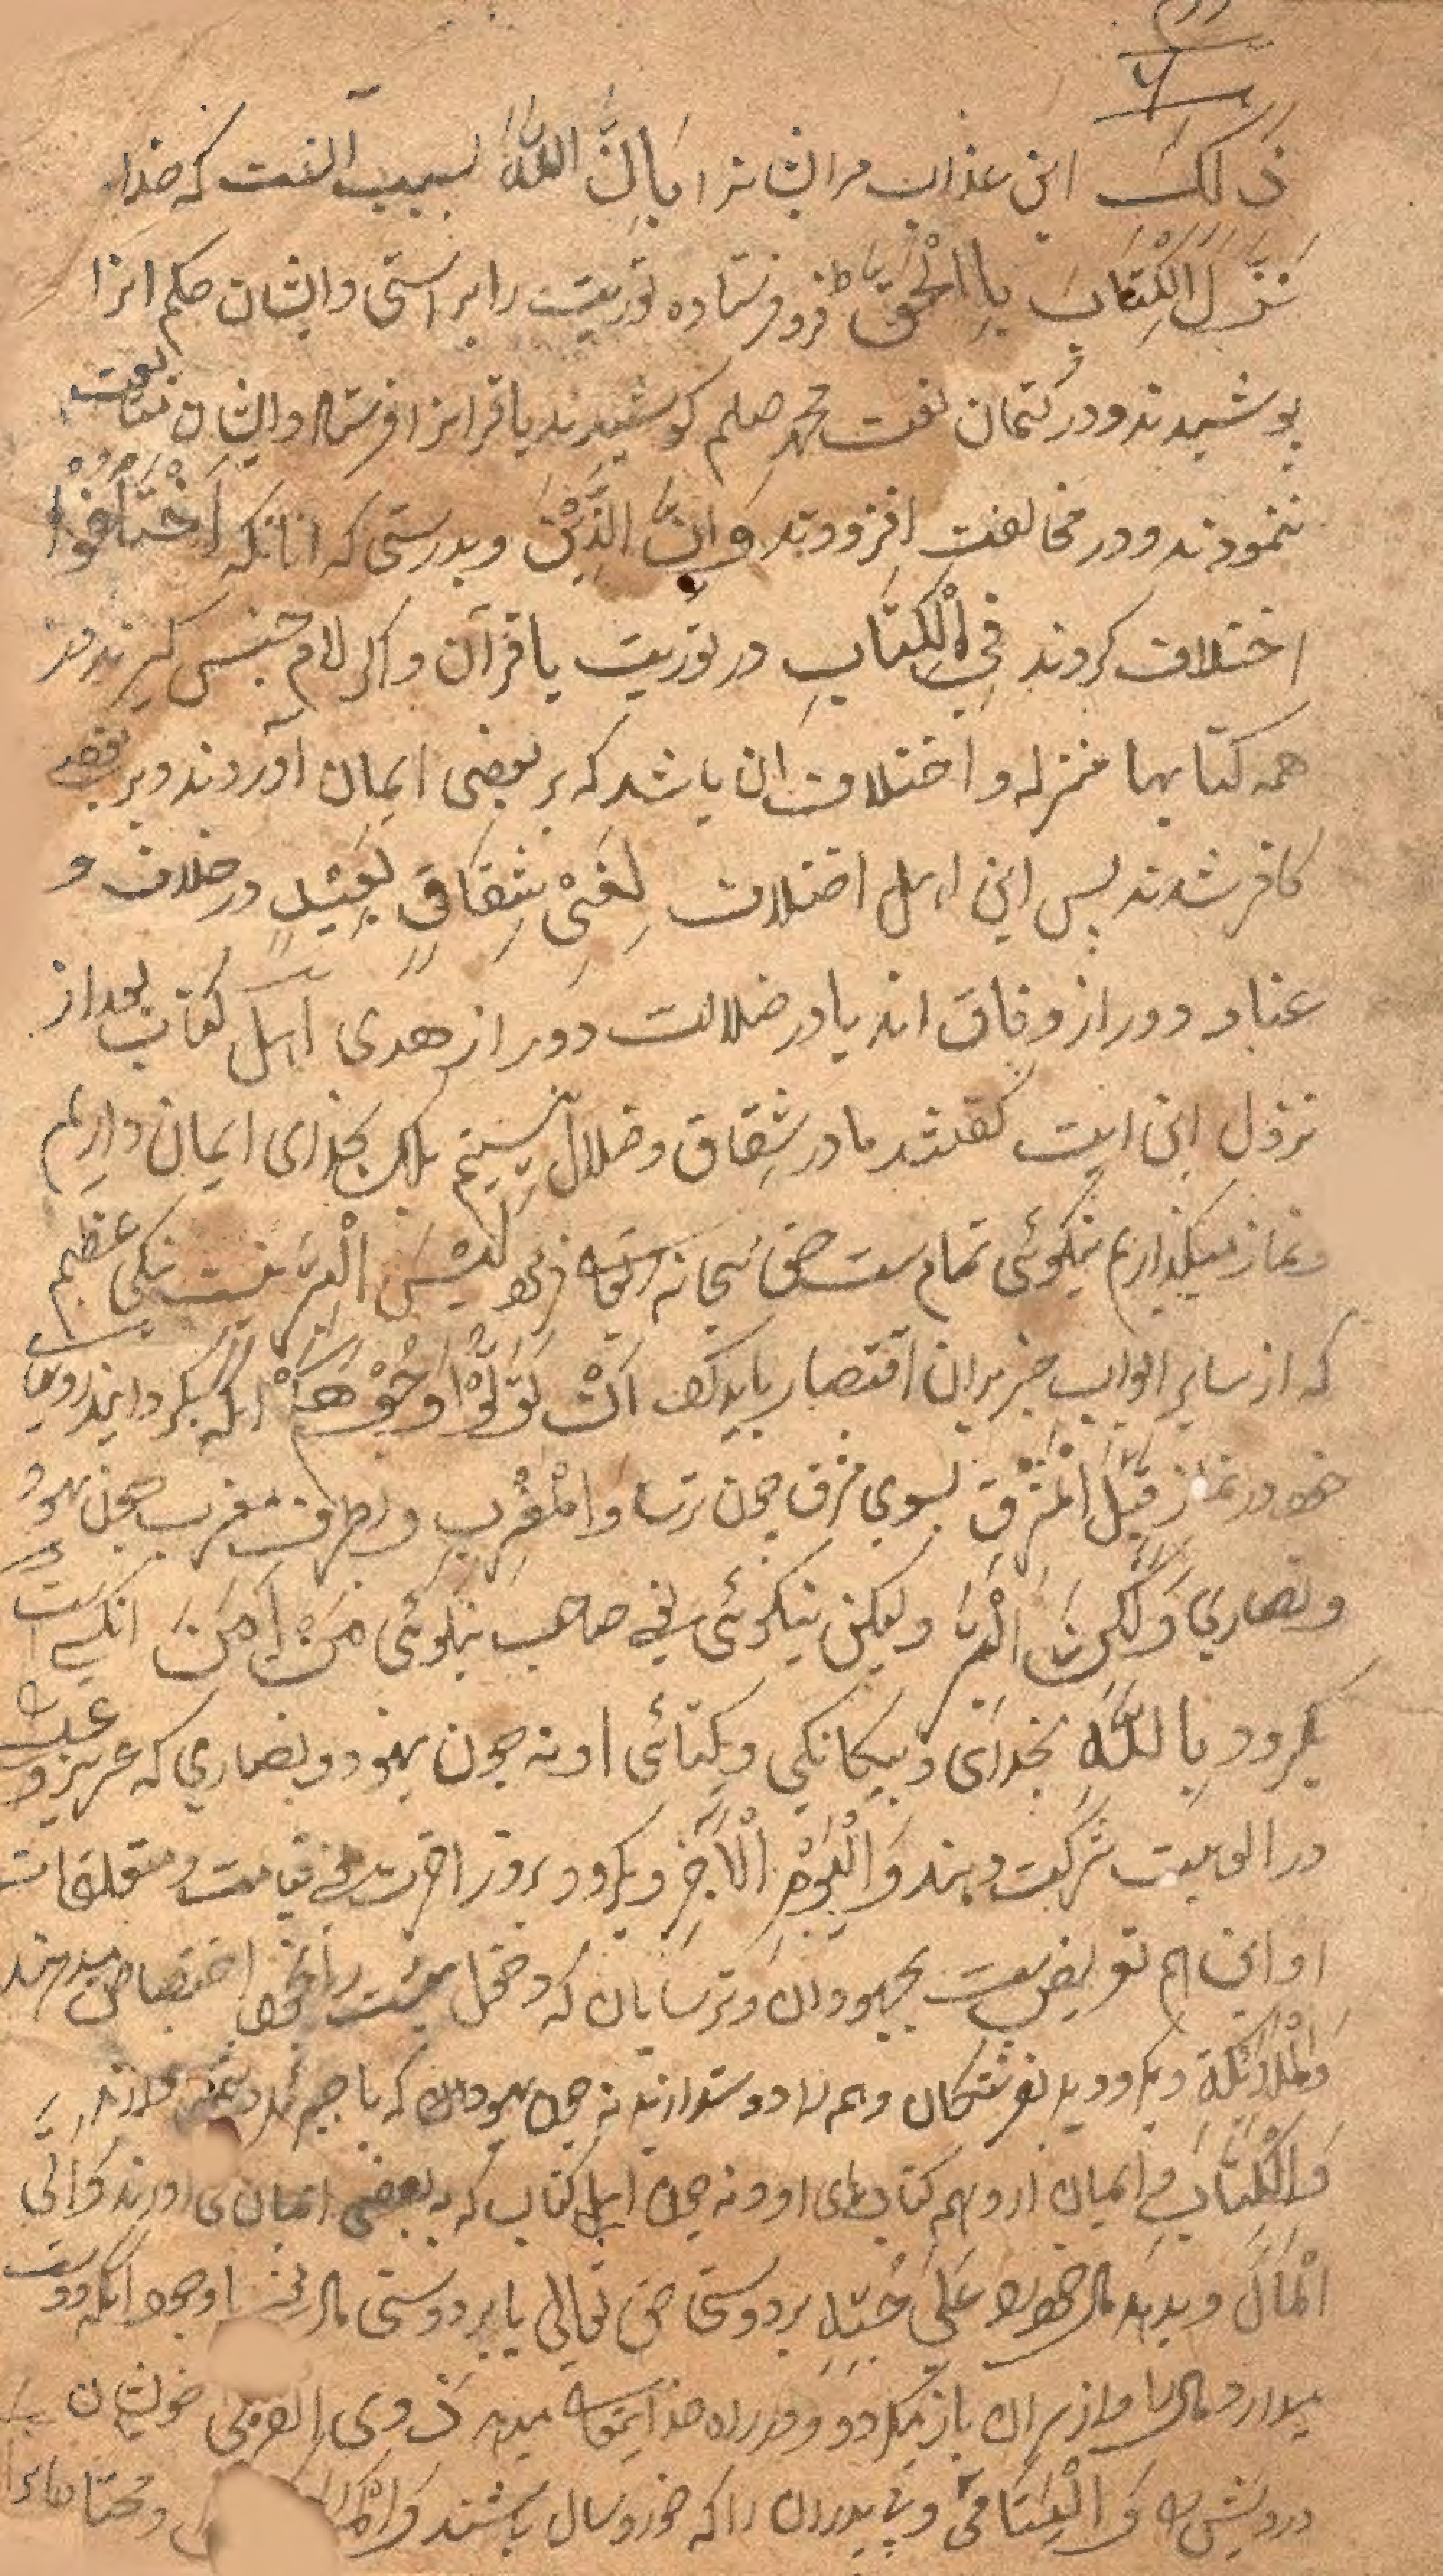 ذٰلِكَ این عذاب مر ایشانرا بِاَنَّ اللّٰهَ بسبب آنست که خدا
نَزَّلَ الْكِتَابَ بِالْحَقِّ ط فرو فرستاده توریت را براستی و ایشان حکم انرا
پوشیدند و در کتمان نعت محمد صلعم کوشیدند یا قرانرا فرستاد و ایشان متابعت
ننمودند و در مخالفت افزودند وَ اِنَّ الَّذِیْنَ و بدرستی که انانکه اخْتَلَفُوْا
اختلاف کردند فِی الْكِتَابِ در توریت یا قرآن و اکر لام جنس کیرند در
همه کتابها منزله و اختلاف ان باشد که بر بعضی ایمان آوردند و بر بعضی
کافر شدند پس این اهل اختلاف لَفِیْ شِقَاقٍ بَعِیْدٍ در خلاف و
عناد دور از وفاق اند یا در ضلالت دور از هدی اهل کتاب بعد از
نزول این ایت کفتند ما در شقاق و ضلال نیستیم بلکه بخدای ایمان داریم
و نماز میکذاریم نیکوئی تمام ست حق سبحانه و تعالی فرمود لَیْسَ الْبِرَّ نیست نیکی عظیم
که از سایر ابواب خیر بران اقتصار باید کرد اَنْ تُوَلُّوْا وُجُوْهَكُمْ انکه بکردانید رویهای
خود در نماز قِبَلَ الْمَشْرِقِ بسوی مشرق چون ترسا وَ الْمَغْرِبِ و طرف مغرب چون یهود
و نصاری وَلٰكِنَّ الْبِرَّ ولیکن نیکوئی یعنی صاحب نیکوئی مَنْ اٰمَنَ انکسی است
بکرود بِاللّٰهِ بخدای و بیکانکی و یکتائی او نه چون یهود و نصاری که عزیز و عیسی
در الوهیت شرکت دهند وَ الْیَوْمِ الْاٰخِرِ و بکرود بروز اخرت یعنی قیامت و متعلقات
او این هم تعریض ست بجهودان و ترسایان که دخول بهشت را بخود اختصاص میدهند
وَالْمَلٰٓئِكَةِ و بکرود بفرشتکان و همه را دوستدارند نه چون یهودان که با جبرئیل دشمنی دارند
وَ الْكِتَابِ و ایمان ارد بهمه کتابهای او و نه چون اهل کتاب که به بعضی ایمان می اورند وَ اٰتَی
الْمَالَ و بدهد مال خود را عَلٰی حُبِّهٖ بر دوستی حق تعالی یا بر دوستی مال یعنی با وجود انکه دوست
میدارد مال را و از سر ان باز میکردد و در راه خدایتعالی میدهد ذَوِی الْقُرْبٰی خویشان
درویش را وَ الْیَتَامٰی و بی پدران را که خورد سال باشند و محتاجانرا